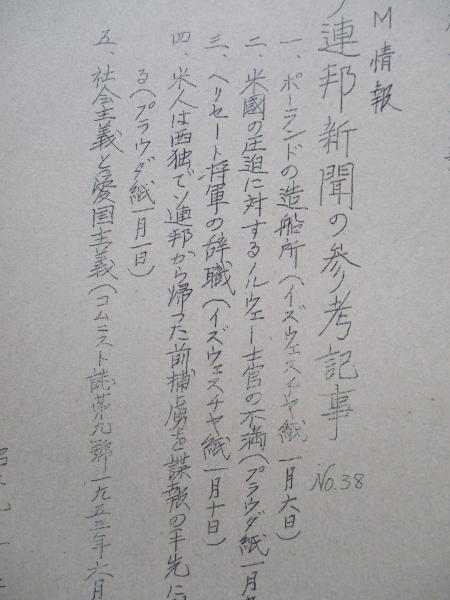 M情報
連邦新聞の参考記事 No.38
一、ポーランドの造船所(イズウェスチヤ紙一月六日)
二、米國の圧迫に対するノルウェー士官の不満(プラウダ紙一月
三、ヘリセート将軍の辞職(イズウェスチヤ紙一月十日)
四、米人は西独でソ連邦から帰った前捕虜を諜報の手先に
る(プラウダ紙一月一日)
五、社会主義と愛国主義(コムニスト誌第九號一九五三年六月